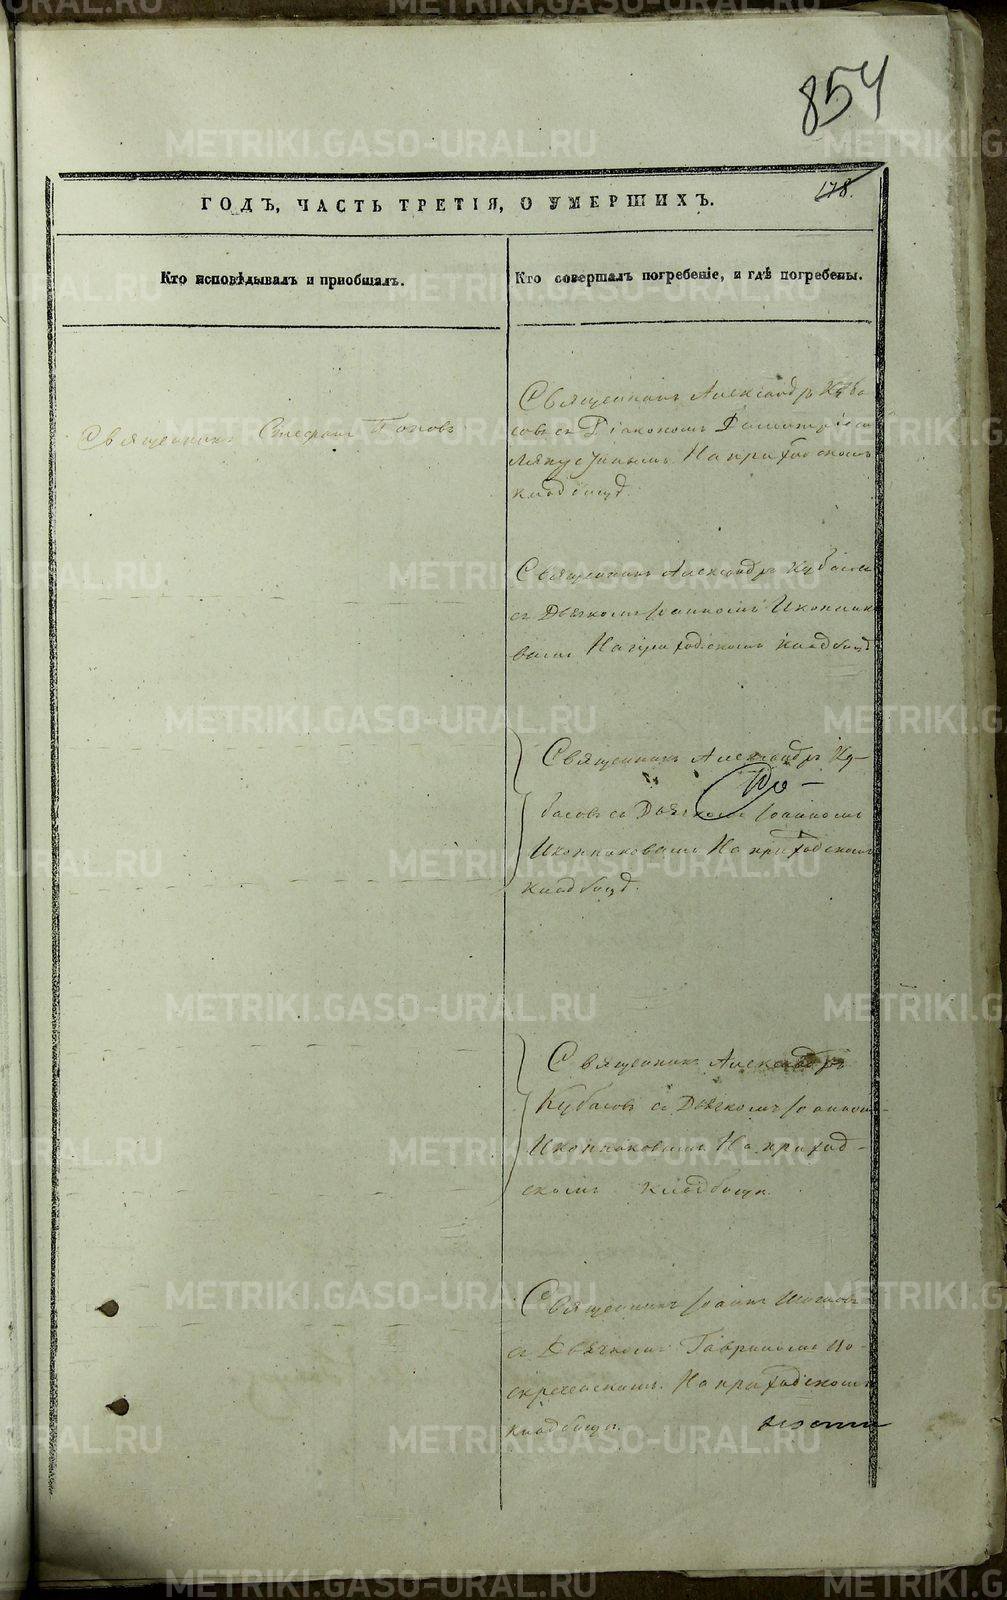 854
178.
ГОДЪ, ЧАСТЬ ТРЕТІЯ, О УМЕРШИХЪ.
Кто исповѣдывалъ и пріобщалъ.
Кто совершалъ погребеніе, и гдѣ погребены.
Священникъ Стефанъ Поповъ
Священникъ Александръ Куба
совъ съ Діакономъ Димитріемъ
На приходскомъ
кладбищѣ.
Священникъ Александръ Кубасовъ
съ Дьячкомъ Іоанномъ Иконнико
вымъ На приходскомъ кладбищѣ
Священникъ Александръ Ку-
басовъ съ Дьячкомъ Іоанномъ
Иконниковымъ На приходскомъ
кладбищѣ.
Священникъ Александръ
Кубасовъ съ Дьячкомъ Іоанномъ
Иконниковымъ На приход-
скомъ кладбищѣ.
Священникъ Іоаннъ
съ Дьячкомъ Гавріиломъ
На приходскомъ
кладбищѣ.
METRIKI.GASO-URAL.RU